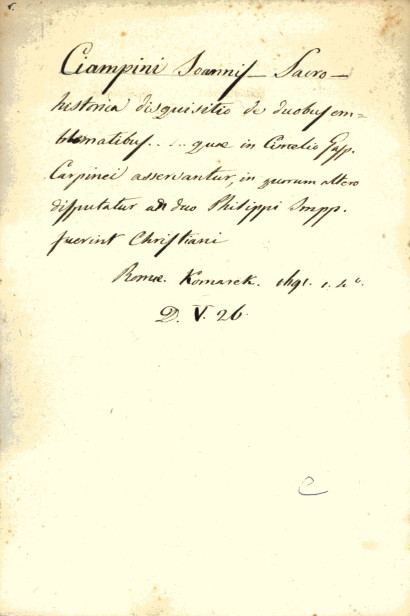 Ciampini Joannis — Sacro —
historica disquisitio de duobus em=
blematibus . . . . quæ in Cimelio Gasp.
Carpinei asservantur, in quorum altero
disputatur an duo Philippi Impp.
fuerint Christiani
Romæ. Komarek. 1691. 1. 4º.
D. V. 26.
C